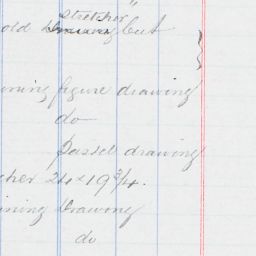 stretcher "
old drawing but
ning figure drawing
do
pastel drawing
cher 24 x 19 3/4.
ining Drawing
do